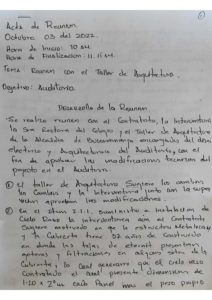 Acta de Reunion
Octubre 03 del 2022.
Hora de Inicio: 10 am.
Hora de Finalizacion: 11 am.
Tema: Reunion con el Taller de Arquitectura.
Objetivo: Auditorio.
Desarrollo de la Reunion
- Se realiza reunion con el Contratista, la Interventoria
la Sra Rectora del Colegio y el Taller de Arquitectura
de la Alcaldia de Bucaramanga encargados del diseño
electrico y Arquitectonico del Auditorio, con el
fin de aprobar las modificaciones tecnicas del
proyecto en el Auditorio.
① El taller de Arquitectura Sugiere los cambios
la Interventoria junto con la
aprueban las modificaciones.
② En el item 2.1.1. Suministro e Instalacion de
Cielo Raso la interventoria con el Contratista
Sugiere motivado en que la estructura Metalica
y la Cubierta tiene 02 años de Construida
en donde las tejas de eternit presentan
goteras y filtraciones en algunas partes de la
Cubierta, lo cual generaria que el cielo raso
Contratado el cual presenta dimensiones de
1.20 x 2 en cada Panel por el peso propio